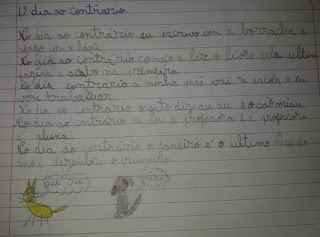 O dia ao contrario
No dia ao contrário eu escrevo com a borracha e
apago com o lápis.
No dia ao contrário começo a ler o livro pela ultima
página e acabo na primeira.
No dia contrario a minha mãi vai á escola e eu
vou trabalhar.
No dia ao contrário o gato diz au au e o cão miau.
No dia ao contrário eu sou a professora e a professora
é aluna.
No dia ao contrário o janeiro é o ultimo mês do
ano e dezembro o primeiro.
au au
miau